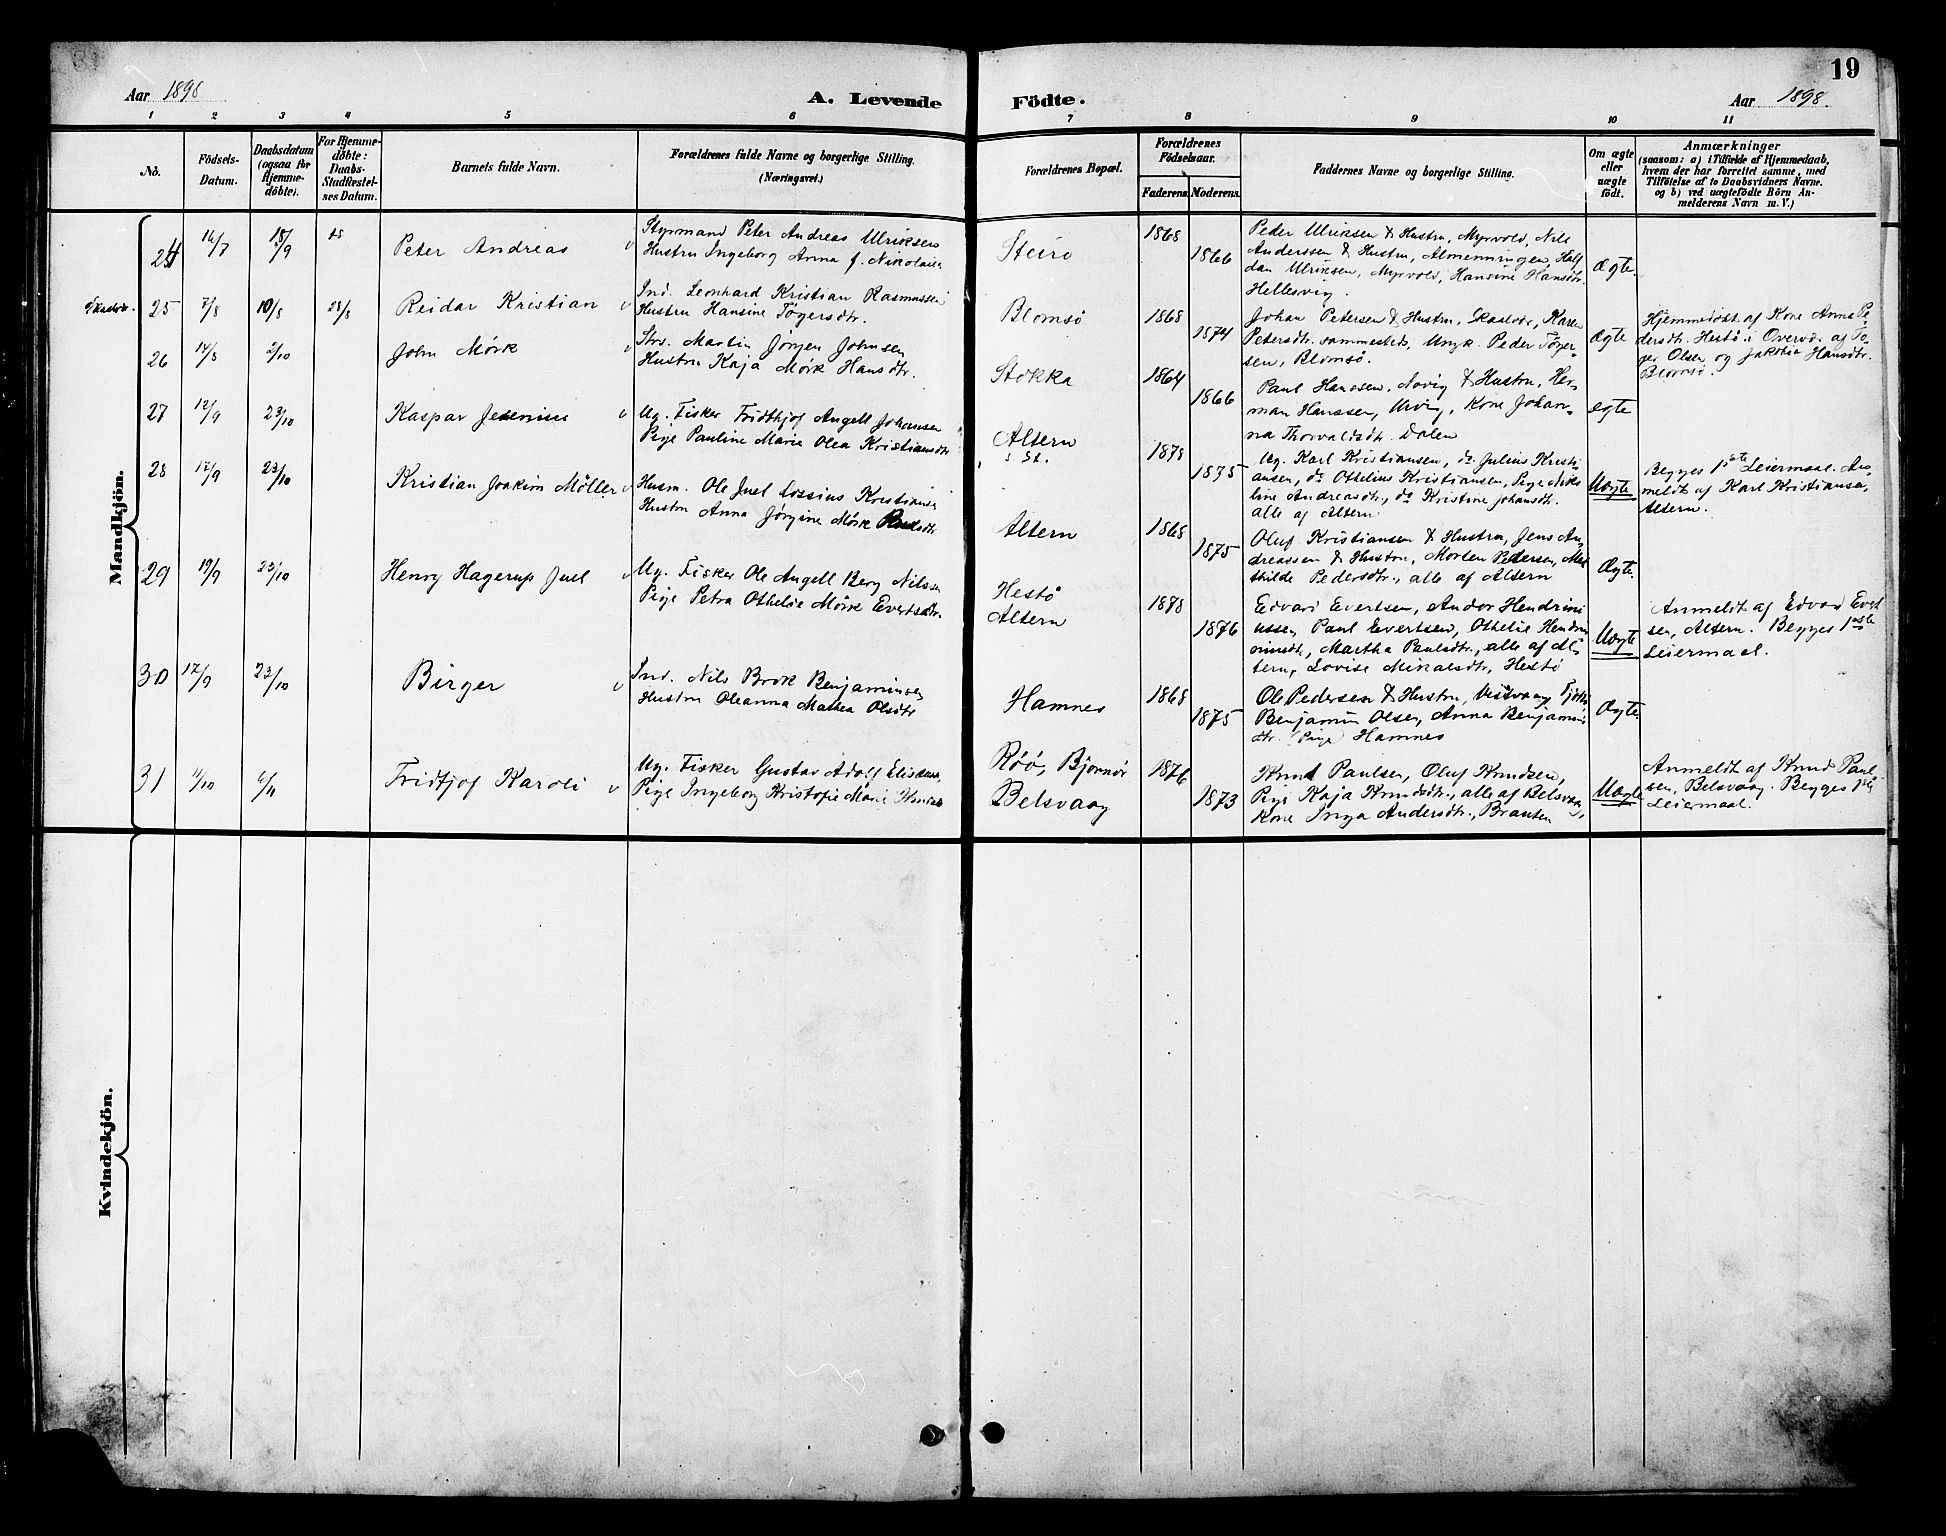 19
Aar 1898
A. Levende
Födte.
Aar 1898.
1 2 3 4 5 6 7 8 9 10 11
No.
Födsels-
Datum.
Daabsdatum
(ogsaa for
Hjemme-
döbte).
For Hjemme-
döbte:
Daabs-
Stadfæstel-
ses Datum.
Barnets fulde Navn.
Forældrenes fulde Navne og borgerlige Stilling.
(Næringsvei.)
Forældrenes Bopæl.
Forældrenes
Födselsaar.
Faderens. Moderens.
Faddernes Navne og borgerlige Stilling.
Om ægte
eller
uægte
födt.
Anmærkninger
(saasom: a) i Tilfælde af Hjemmedaab,
hvem der har forrettet samme, med
Tilföielse af to Daabsvidners Navne.
og b) ved uægtefödte Börn An-
melderens Navn m. V.)
Mandkjön.
24
18/9
Peter Andreas
Styrmand Peter Andreas Ulriksen
Hustru Ingeborg Anna f. Nikolaisen
Steiro
1868
1866
Peder Ulriksen & Hustru, Myrvold, Nils
Anderssen & Hustru, Almenningen, Half
dan Ulriksen, Myrvold, Hansine Hansdtr.
Hellesvig.
Ægte
25
7/8
10/8
28/8
Reidar Kristian
Ind. Leonhard Kristian Rasmussen
Hustru Hansine Töyersdtr.
Blomsö
1868
1874
Johan Petersen & Hustru, Skaalvær, Karen
Petersdtr. sammesteds, Ungk. Peder Töger-
sen, Blomsö.
Ægte
Hjemmedöbt af Kone Anna Pe-
dersdtr. Hestö i Overvær af Tö-
ger Olsen og Jakobia Hansdtr.
Blomsö.
26
14/8
2/10
John Mörk
Strd. Martin Jörgen Johnsen
Hustru Kaja Mörk Hansdtr.
Stokka
1864
1866
Paul Hanssen, Novig & Hustru, Her-
man Hanssen, Urvig, Kone Johan-
na Thorvaldsdtr. Dalen
Ægte
27
12/9
23/10
Kaspar Jessenius
Ug. Fisker Fridthjof Angell Johansen
Pige Pauline Marie Olea Kristiansdtr
Altern
s. St.
1878
1875
Ug. Karl Kristiansen, do. Julius Kristi-
ansen, do Othelius Kristiansen, Pige Niko-
line Andreasdtr., do Kristine Johansdtr.
alle af Altern
Uægte
Begges 1ste Leiermaal. An-
meldt af Karl Kristiansen,
Altern.
28
17/9
23/10
Kristian Joakim Möller
Husm. Ole Juel Lossius Kristiansen
Hustru Anna Jörgine Mörk
Altern
1868
1875
Oluf Kristiansen & Hustru, Jens An-
dreassen & Hustru, Morten Pedersen, Mat
thilde Pedersdtr., alle af Altern
Ægte.
29
19/9
23/10
Henry Hagerup Juel
Ug. Fisker Ole Angell Berg Nilssen
Pige Petra Othelie Mörk Evertsdtr.
Hestö
Altern
1878
1876
Edvard Evertsen, Andor Hendrini
ussen, Paul Evertsen, Othelie Hendri
Martha Paulsdtr., alle af Al-
tern, Lovise Mikalsdtr, Hestö
Uægte
Anmeldt af Edvard Evert
sen, Altern. Begges 1ste
Leiermaal.
30
17/9
23/10
Birger
Ind. Nils Brok Benjaminsen
Hustru Oleanna Mathea Olsdtr
Hamnes
1868
1875
Ole Pedersen & Hustru,
Benjamin Olsen, Anna Benjamins
dtr. (Pige) Hamnes
Ægte.
31
Fridtjof Karoli
Ug. Fisker Gustav Adolf
Pige Ingeborg Kristofie Marie
Röö, Björnör
Belsvaag
1876
1873
Knut Paulsen, Oluf Knudsen,
Pige Kaja Knudsdtr., alle af Belsvaag,
Kone Inga Andersdtr., Brasten
Uægte
Anmeldt af Knud Paul
sen, Belsvaag. Begges 1ste
Leiermaal.
Kvindekjön.